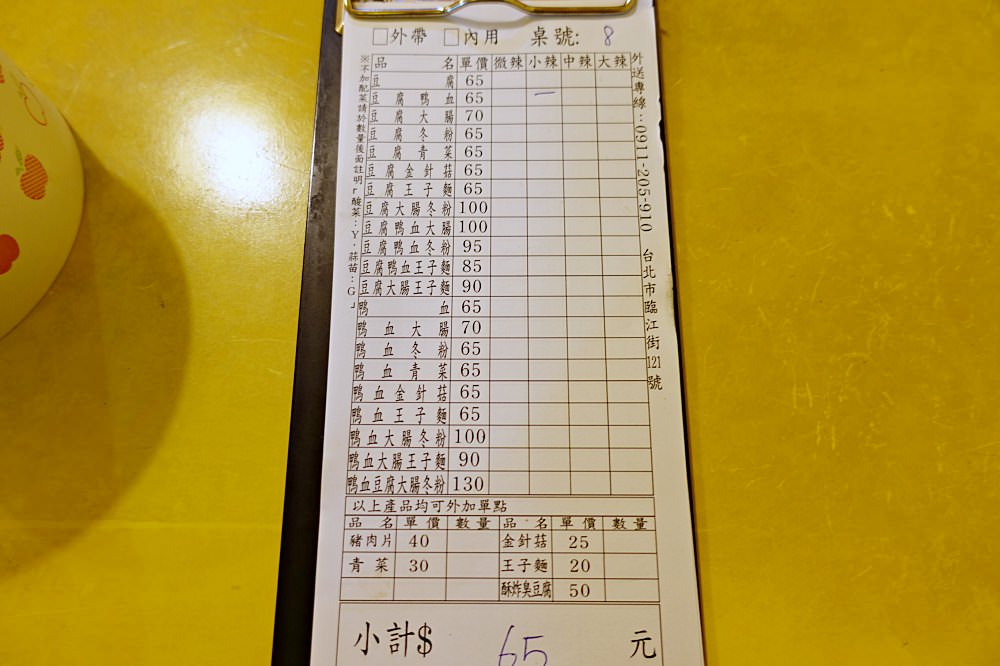 □外帶 □內用 桌號: 8
品名 單價 微辣 小辣 中辣 大辣
豆腐 65
豆腐鴨血 65 一
豆腐大腸 70
豆腐冬粉 65
豆腐青菜 65
豆腐金針菇 65
豆腐王子麵 65
豆腐大腸冬粉 100
豆腐鴨血大腸 100
豆腐鴨血冬粉 95
豆腐鴨血王子麵 85
豆腐大腸王子麵 90
鴨血 65
鴨血大腸 70
鴨血冬粉 65
鴨血青菜 65
鴨血金針菇 65
鴨血王子麵 65
鴨血大腸冬粉 100
鴨血大腸王子麵 90
鴨血豆腐大腸冬粉 130
※不加配菜請於數量後面註明「酸菜:Y,蒜苗:G」
外送專線:0911-205-910 台北市臨江街121號
以上產品均可外加單點
品名 單價 數量 品名 單價 數量
豬肉片 40 金針菇 25
青菜 30 王子麵 20
酥炸臭豆腐 50
小計$ 65 元